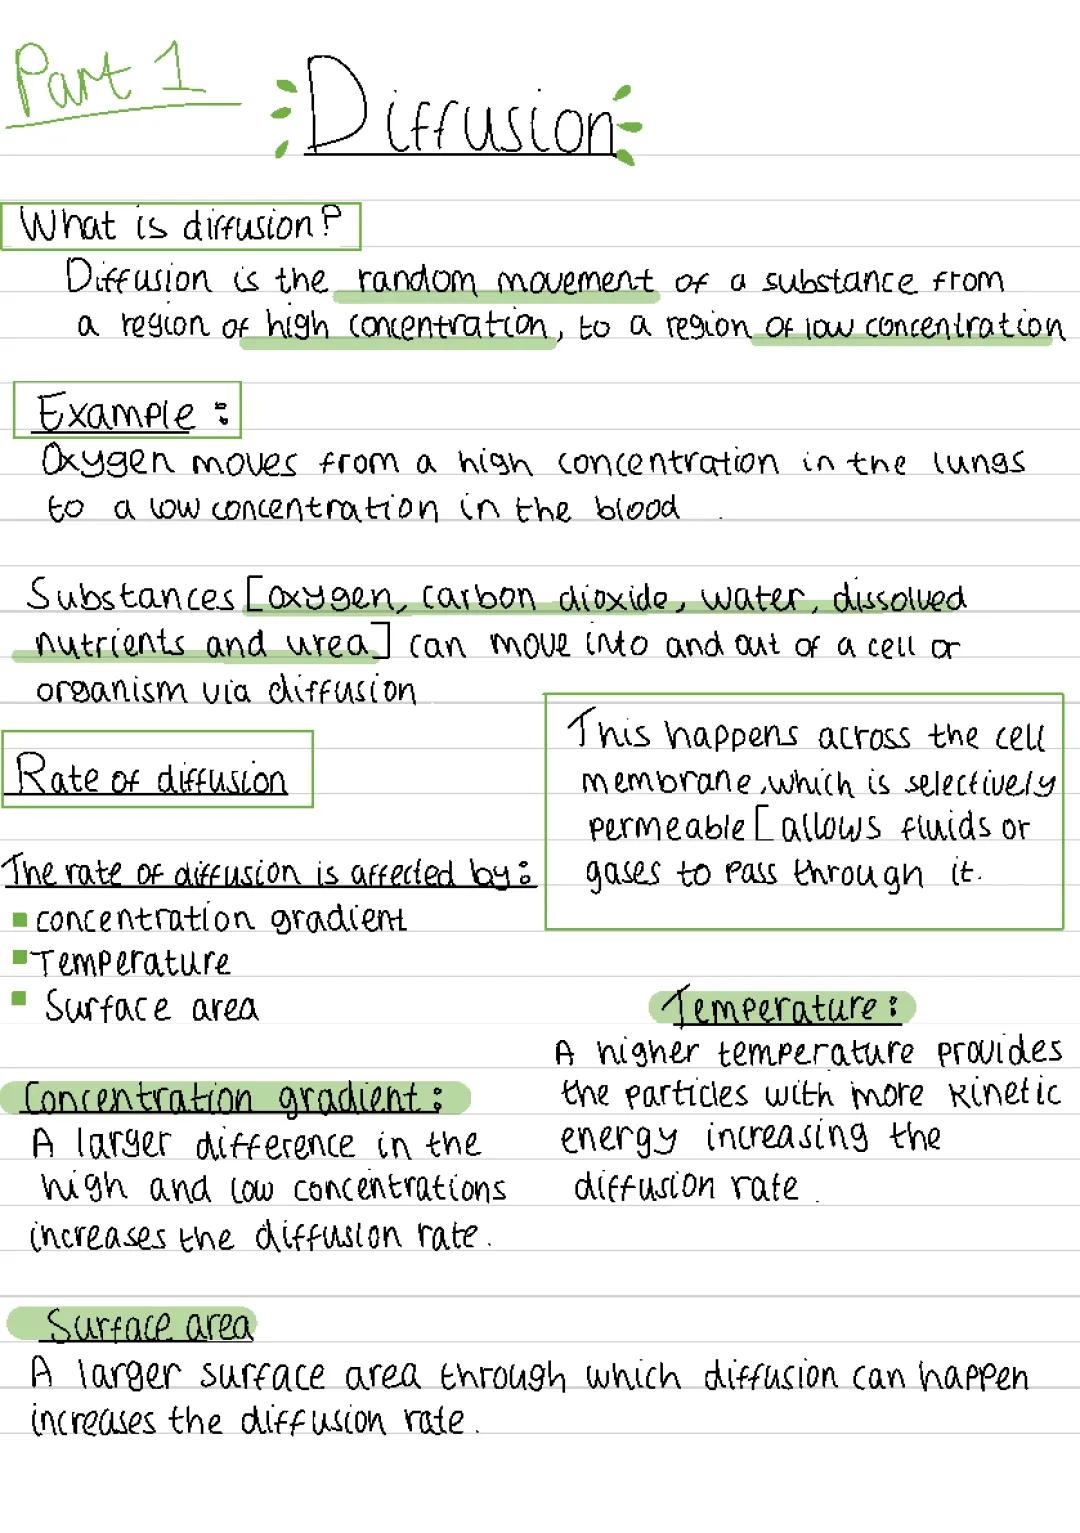 Part 1
Diffusion
What is diffusion?
Diffusion is the random movement of a substance from
a region of high concentration, to a region of low concentration
Example:
Oxygen moves from a high concentration in the lungs
to a low concentration in the blood.
Substances [oxygen, carbon dioxide, water, dissolved
nutrients and urea] can move into and out of a cell or
organism via diffusion
This happens across the cell
membrane, which is selectively
permeable [allows fluids or
gases to pass through it.
Rate of diffusion
The rate of diffusion is affected by:
▪ concentration gradient
▪ Temperature
▪ Surface area
Temperature:
A higher temperature provides
the particles with more kinetic
energy increasing the
diffusion rate.
Concentration gradient:
A larger difference in the
high and low concentrations
increases the diffusion rate.
Surface area
A larger surface area through which diffusion can happen
increases the diffusion rate.